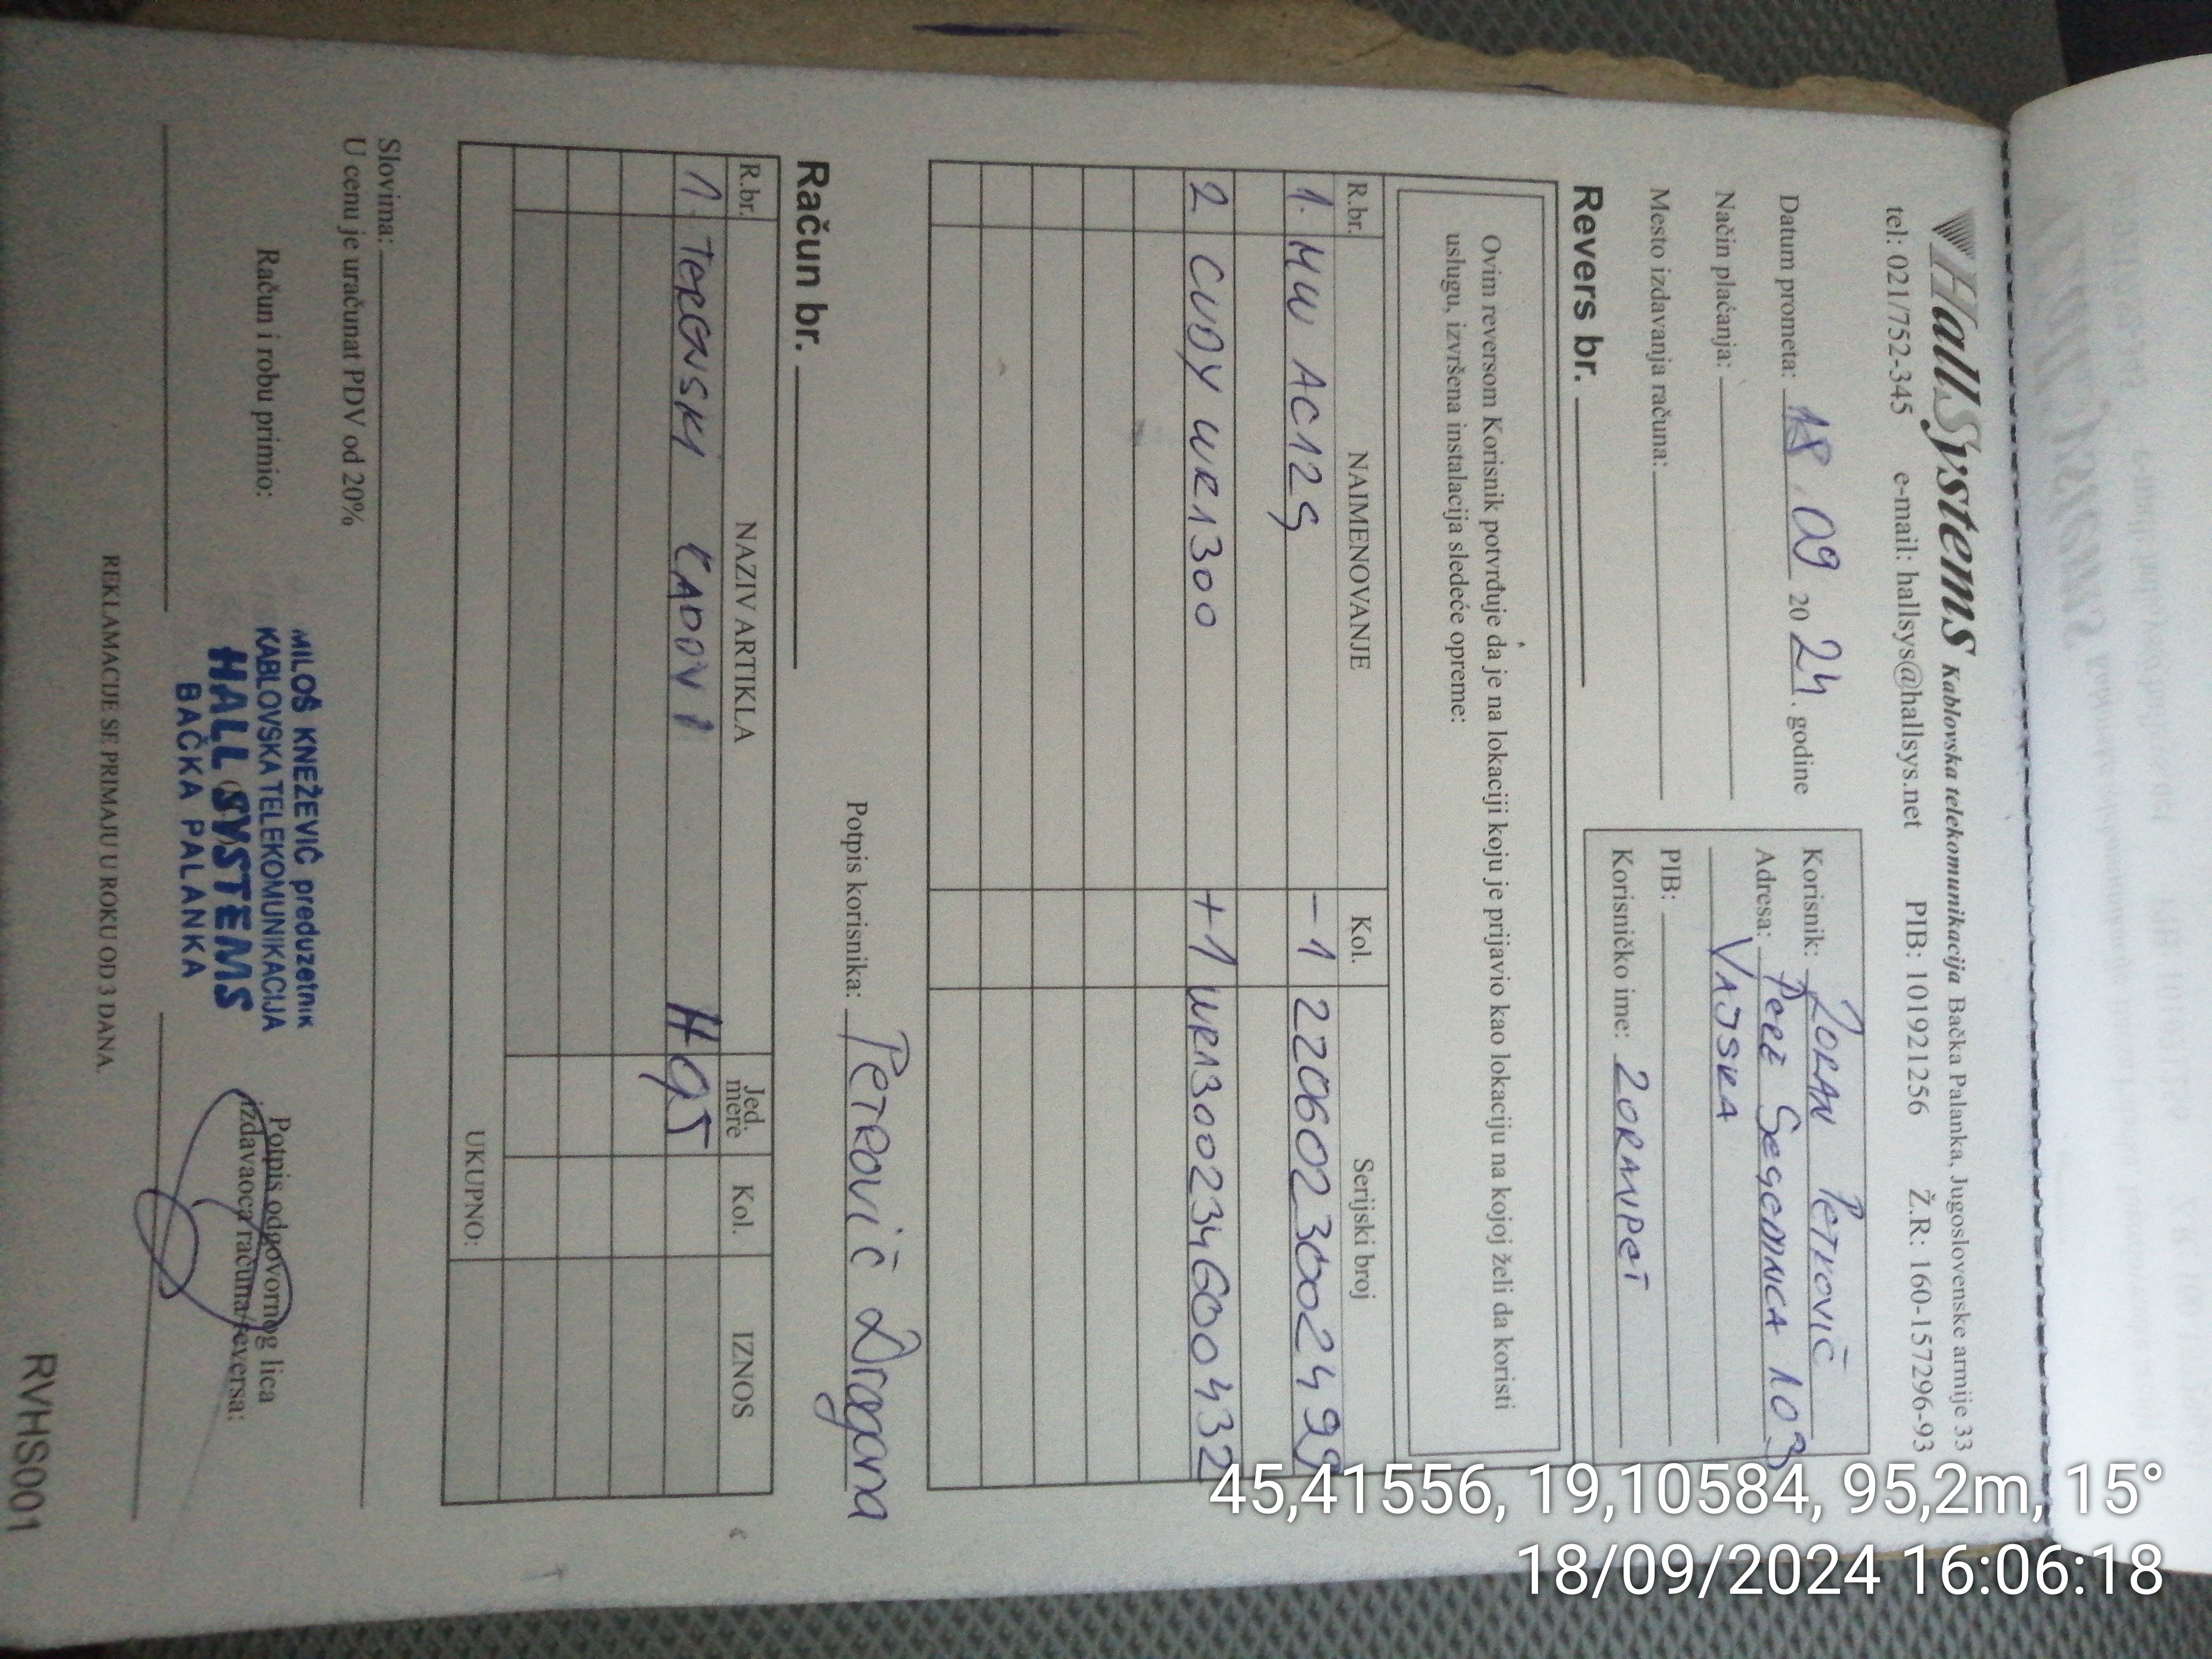 HallSystems Kablovska telekomunikacija Bačka Palanka, Jugoslovenske armije 33
tel: 021/752-345 e-mail: hallsys@hallsys.net PIB: 101921256 Ž.R: 160-157296-93
Datum prometa: 18.09 2024. godine
Način plaćanja:
Mesto izdavanja računa:
Korisnik: ZORAN PETKOVIĆ
Adresa: PERE SEGEDINCA 103
VAJSKA
PIB:
Korisničko ime: ZORANPET
Revers br.
Ovim reversom Korisnik potvrđuje da je na lokaciji koju je prijavio kao lokaciju na kojoj želi da koristi
uslugu, izvršena instalacija sledeće opreme:
R.br. NAIMENOVANJE Kol. Serijski broj
1. MW AC12G -1 2206023002499
2 CUDY WR1300 +1 WR1300234600432
Potpis korisnika: Petrović Dragana
Račun br.
R.br. NAZIV ARTIKLA Jed. mere Kol. IZNOS
1. TERENSKI RADOVI
UKUPNO:
Slovima:
U cenu je uračunat PDV od 20%
Račun i robu primio:
MILOŠ KNEŽEVIĆ preduzetnik
KABLOVSKA TELEKOMUNIKACIJA
HALL SYSTEMS
BAČKA PALANKA
Potpis odgovornog lica
izdavaoca računa/reversa:
REKLAMACIJE SE PRIMAJU U ROKU OD 3 DANA
RVHS001
45,41556, 19,10584, 95,2m, 15°
18/09/2024 16:06:18